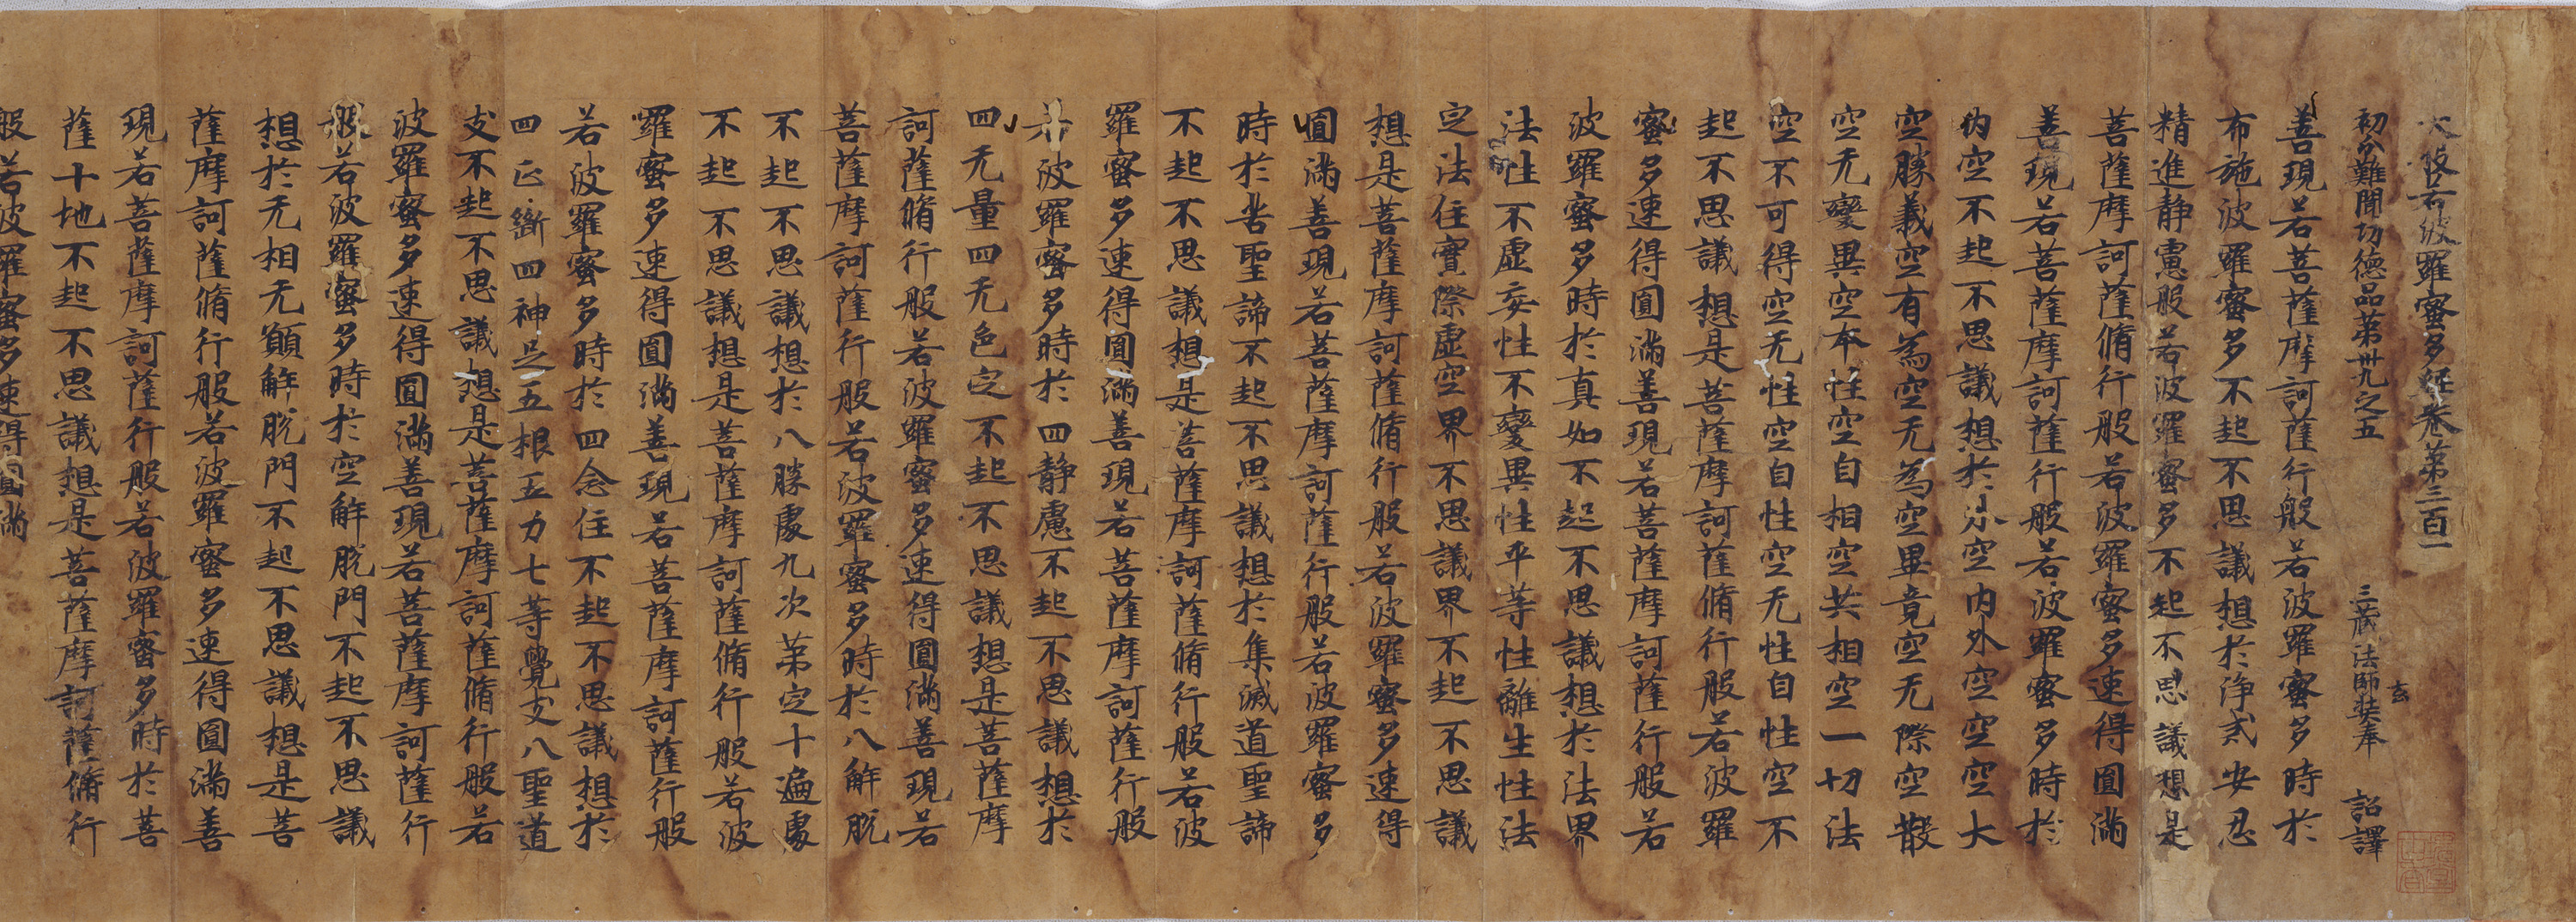 大般若波羅蜜多經卷第三百一
初分難聞功德品第卅九之五 三藏法師玄奘奉 詔譯
善現若菩薩摩訶薩行般若波羅蜜多時於
布施波羅蜜多不起不思議想於淨貳安忍
精進静慮般若波羅蜜多不起不思議想是
菩薩摩訶薩脩行般若波羅蜜多速得圓滿
善現若菩薩摩訶薩行般若波羅蜜多時於
内空不起不思議想於外空内外空空空大
空勝義空有為空无為空畢竟空无際空散
空无變異空本性空自相空共相空一切法
空不可得空无性空自性空无性自性空不
起不思議想是菩薩摩訶薩脩行般若波羅
蜜多速得圓滿善現若菩薩摩訶薩行般若
波羅蜜多時於真如不起不思議想於法界
法性不虛妄性不變異性平等性離生性法
定法住實際虛空界不思議界不起不思議
想是菩薩摩訶薩脩行般若波羅蜜多速得
圓滿善現若菩薩摩訶薩行般若波羅蜜多
時於苦聖諦不起不思議想於集滅道聖諦
不起不思議想是菩薩摩訶薩脩行般若波
羅蜜多速得圓滿善現若菩薩摩訶薩行般
若波羅蜜多時於四静慮不起不思議想於
四无量四无色定不起不思議想是菩薩摩
訶薩脩行般若波羅蜜多速得圓滿善現若
菩薩摩訶薩行般若波羅蜜多時於八解脱
不起不思議想於八勝處九次第定十遍處
不起不思議想是菩薩摩訶薩脩行般若波
羅蜜多速得圓滿善現若菩薩摩訶薩行般
若波羅蜜多時於四念住不起不思議想於
四正斷四神足五根五力七等覺支八聖道
支不起不思議想是菩薩摩訶薩脩行般若
波羅蜜多速得圓滿善現若菩薩摩訶薩行
般若波羅蜜多時於空解脱門不起不思議
想於无相无願解脱門不起不思議想是菩
薩摩訶薩脩行般若波羅蜜多速得圓滿善
現若菩薩摩訶薩行般若波羅蜜多時於菩
薩十地不起不思議想是菩薩摩訶薩脩行
般若波羅蜜多速得圓滿